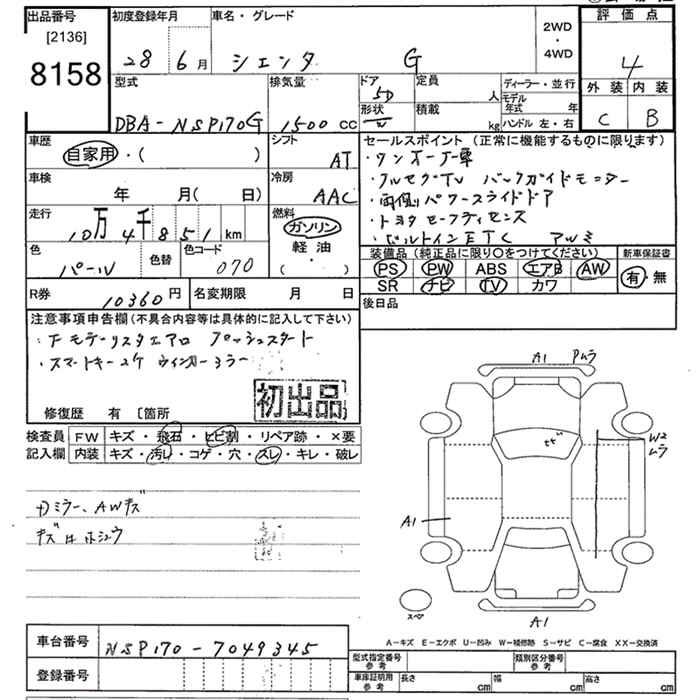 出品番号
[2136]
8158
初度登録年月
28 6月
車名・グレード
シエンタ G
2WD
・
4WD
評価点
4
外装 内装
C B
型式
DBA-NSP170G
排気量
1500 CC
ドア
5D
形状
W
定員
人
積載
kg
ディーラー・並行
モデル年式 年
ハンドル 左・右
車歴
自家用・( )
シフト
AT
車検
年 月( 日)
冷房
AAC
走行
10万4千851km
燃料
ガソリン
軽油
( )
色
パール
色替
色カラーコード
070
R券
10360円
名変期限 月 日
セールスポイント (正常に機能するものに限ります)
・ワンオーナー車
・フルセグTV バックガイドモニター
・両側パワースライドドア
・トヨタセーフティセンス
・ビルトインETC アルミ
装備品 (純正品に限り○をつけてください)
PS PW ABS エアB AW
SR ナビ TV カワ
新車保証書
有・無
後日品
注意事項申告欄(不具合内容等は具体的に記入して下さい)
・モデリスタエアロ プッシュスタート
・スマートキー2ケ ウィンカーミラー
初出品
修復歴 有 [箇所
検査員記入欄
FW キズ・飛石・ヒビ割・リペア跡・×要
内装 キズ・汚レ・コゲ・穴・スレ・キレ・破レ
ミラー、AWキズ
キズ ホシュウ
A1 Pムラ
ヒビ
W2
ムラ
A1
スペア
A1
A-キズ E-エクボ U-凹み W-補修跡 S-サビ C-腐食 XX-交換済
車台番号
NSP170-7049345
登録番号
型式指定番号
参考
類別区分番号
参考
車庫証明用
参考
長さ cm
幅 cm
高さ cm